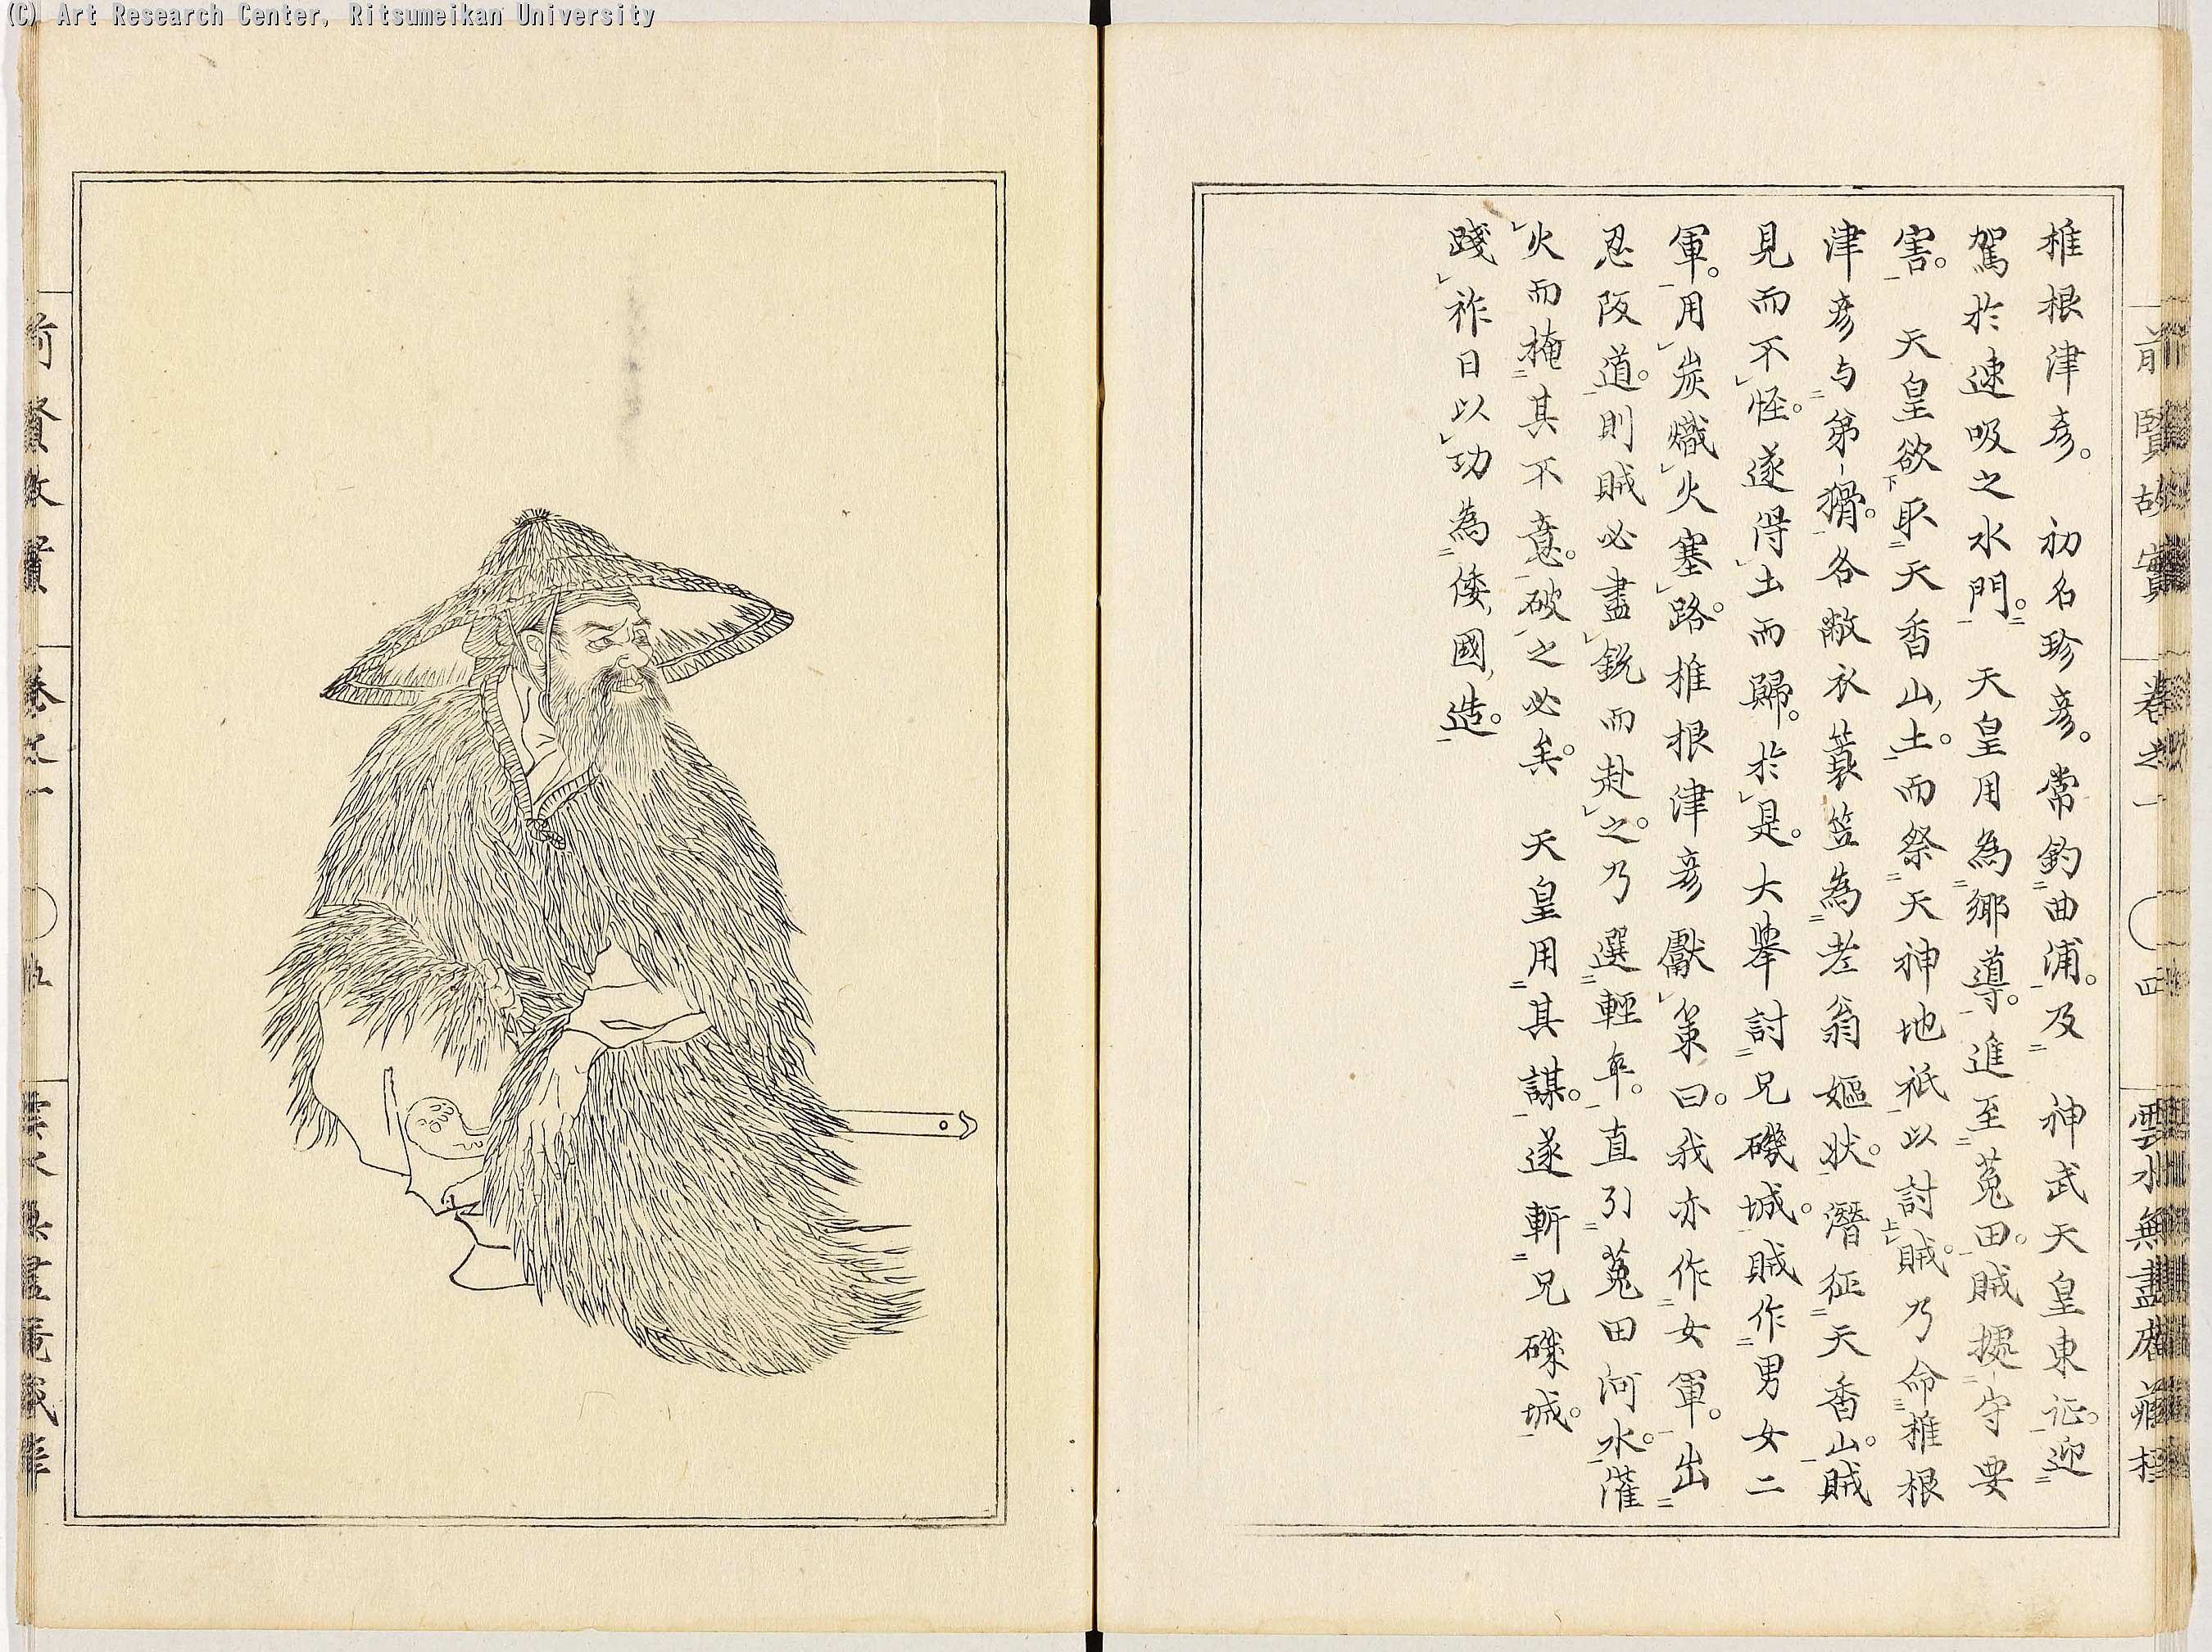 (C) Art Research Center, Ritsumeikan University
前賢故實 卷之一 〇四 雲水無盡庵藏
椎根津彦。 初名珍彦。常釣曲浦。及 神武天皇東征。迎
駕於速吸之水門。 天皇用為鄉導。進至菟田。賊據守要
害。 天皇欲取天香山土。而祭天神地祇以討賊。乃命椎根
津彦与弟猾。各敝衣蓑笠為老翁嫗状。潛征天香山。賊
見而不怪。遂得土而歸。於是。大擧討兄磯城。賊作男女二
軍。用炭熾火塞路。椎根津彦獻策曰。我亦作女軍。出
忍阪道。則賊必盡銳而赴之。乃選輕卒。直引菟田河水。灌
火而掩其不意。破之必矣。 天皇用其謀。遂斬兄磯城。
踐祚日以功為倭國造。
前賢故實 卷之一 〇五 雲水無盡庵藏